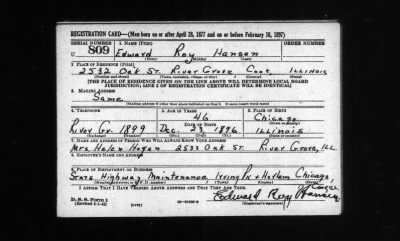 REGISTRATION CARD—(Men born on or after April 28, 1877 and on or before February 16, 1897)
SERIAL NUMBER 1. NAME (Print) ORDER NUMBER
U 809 Edward Roy Hansen
(First) (Middle) (Last)
2. PLACE OF RESIDENCE (Print)
2532 Oak St. River Grove Cook, Illinois
(Number and street) (Town, township, village, or city) (County) (State)
[THE PLACE OF RESIDENCE GIVEN ON THE LINE ABOVE WILL DETERMINE LOCAL BOARD
JURISDICTION; LINE 2 OF REGISTRATION CERTIFICATE WILL BE IDENTICAL]
3. MAILING ADDRESS
Same
[Mailing address if other than place indicated on line 2. If same insert word same]
4. TELEPHONE 5. AGE IN YEARS 6. PLACE OF BIRTH
46 Chicago
DATE OF BIRTH (Town or county)
River Gr. 1899 Dec. 1896 Illinois
(Exchange) (Number) (Mo.) (Day) (Yr.) (State or country)
7. NAME AND ADDRESS OF PERSON WHO WILL ALWAYS KNOW YOUR ADDRESS
Mrs Helen 2532 Oak St River Grove, Ill
8. EMPLOYER'S NAME AND ADDRESS
9. PLACE OF EMPLOYMENT OR BUSINESS
State Highway Maintenance Irving Pk + Harlem Chicago,
(Number and street or R. F. D. number) (Town)
I AFFIRM THAT I HAVE VERIFIED ABOVE ANSWERS AND THAT THEY ARE TRUE.
D. S. S. Form 1
Edward Roy Hansen